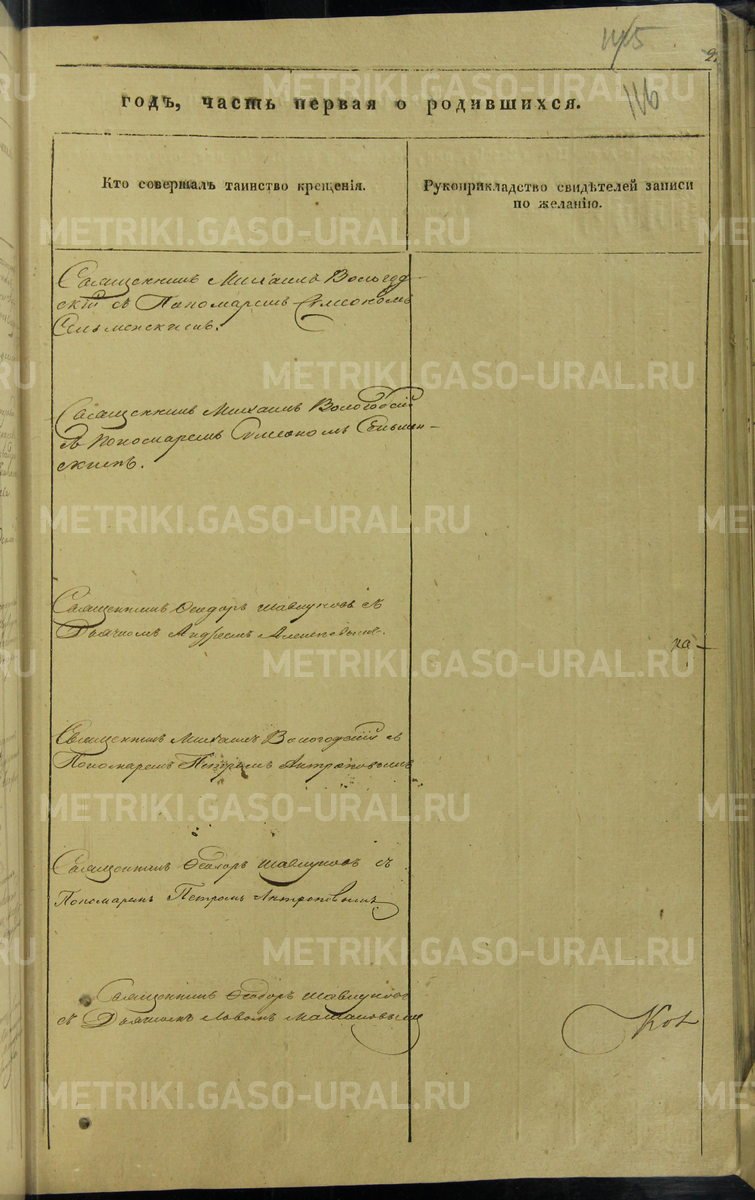 115
2.
116
годъ, часть первая о родившихся.
Кто совершалъ таинство крещенія.
Рукоприкладство свидѣтелей записи
по желанію.
Священникъ Михаилъ Вологод-
скій съ Пономаремъ Симеономъ
Сельменскимъ.
Священникъ Михаилъ Вологодскій
съ Пономаремъ Симеономъ Сельмен-
скимъ.
Священникъ Ѳеодоръ Шавкуновъ съ
Дьячкомъ Андреемъ
ка
Священникъ Михаилъ Вологодскій съ
Пономаремъ Петромъ Антроповымъ
Священникъ Ѳеодоръ Шавкуновъ съ
Пономаремъ Петромъ Антроповымъ
Священникъ Ѳеодоръ Шавкуновъ
съ Дьячкомъ
METRIKI.GASO-URAL.RU